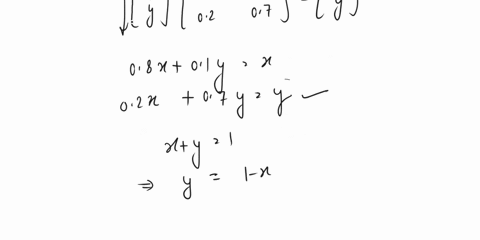 [y] [0.2 0.7] = [y]
0.8x + 0.1y = x
0.2x + 0.7y = y ✓
x+y = 1
⇒ y = 1-x